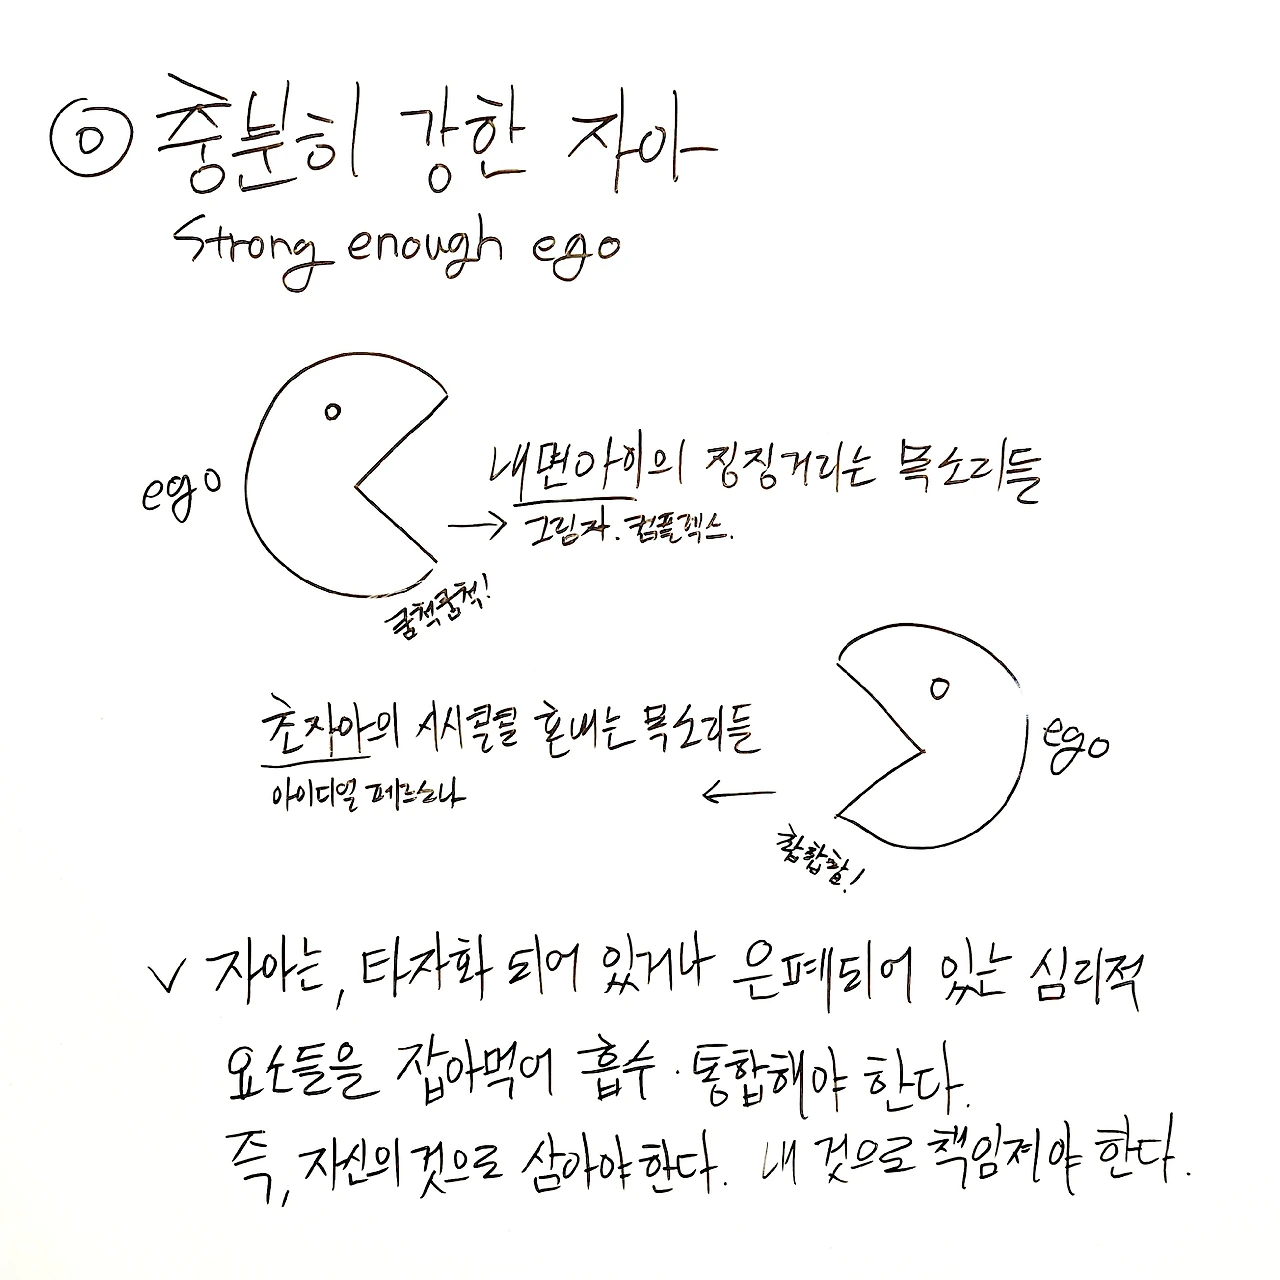 ◎ 충분히 강한 자아
Strong enough ego
ego
내면아이의 징징거리는 목소리들
→ 그림자. 컴플렉스.
쿰척쿰척!
초자아의 시시콜콜 혼내는 목소리들
아이디얼 페르소나
←
ego
촵촵촵!
✓ 자아는, 타자화 되어 있거나 은폐되어 있는 심리적
요소들을 잡아먹어 흡수·통합해야 한다.
즉, 자신의 것으로 삼아야 한다. 내 것으로 책임져야 한다.